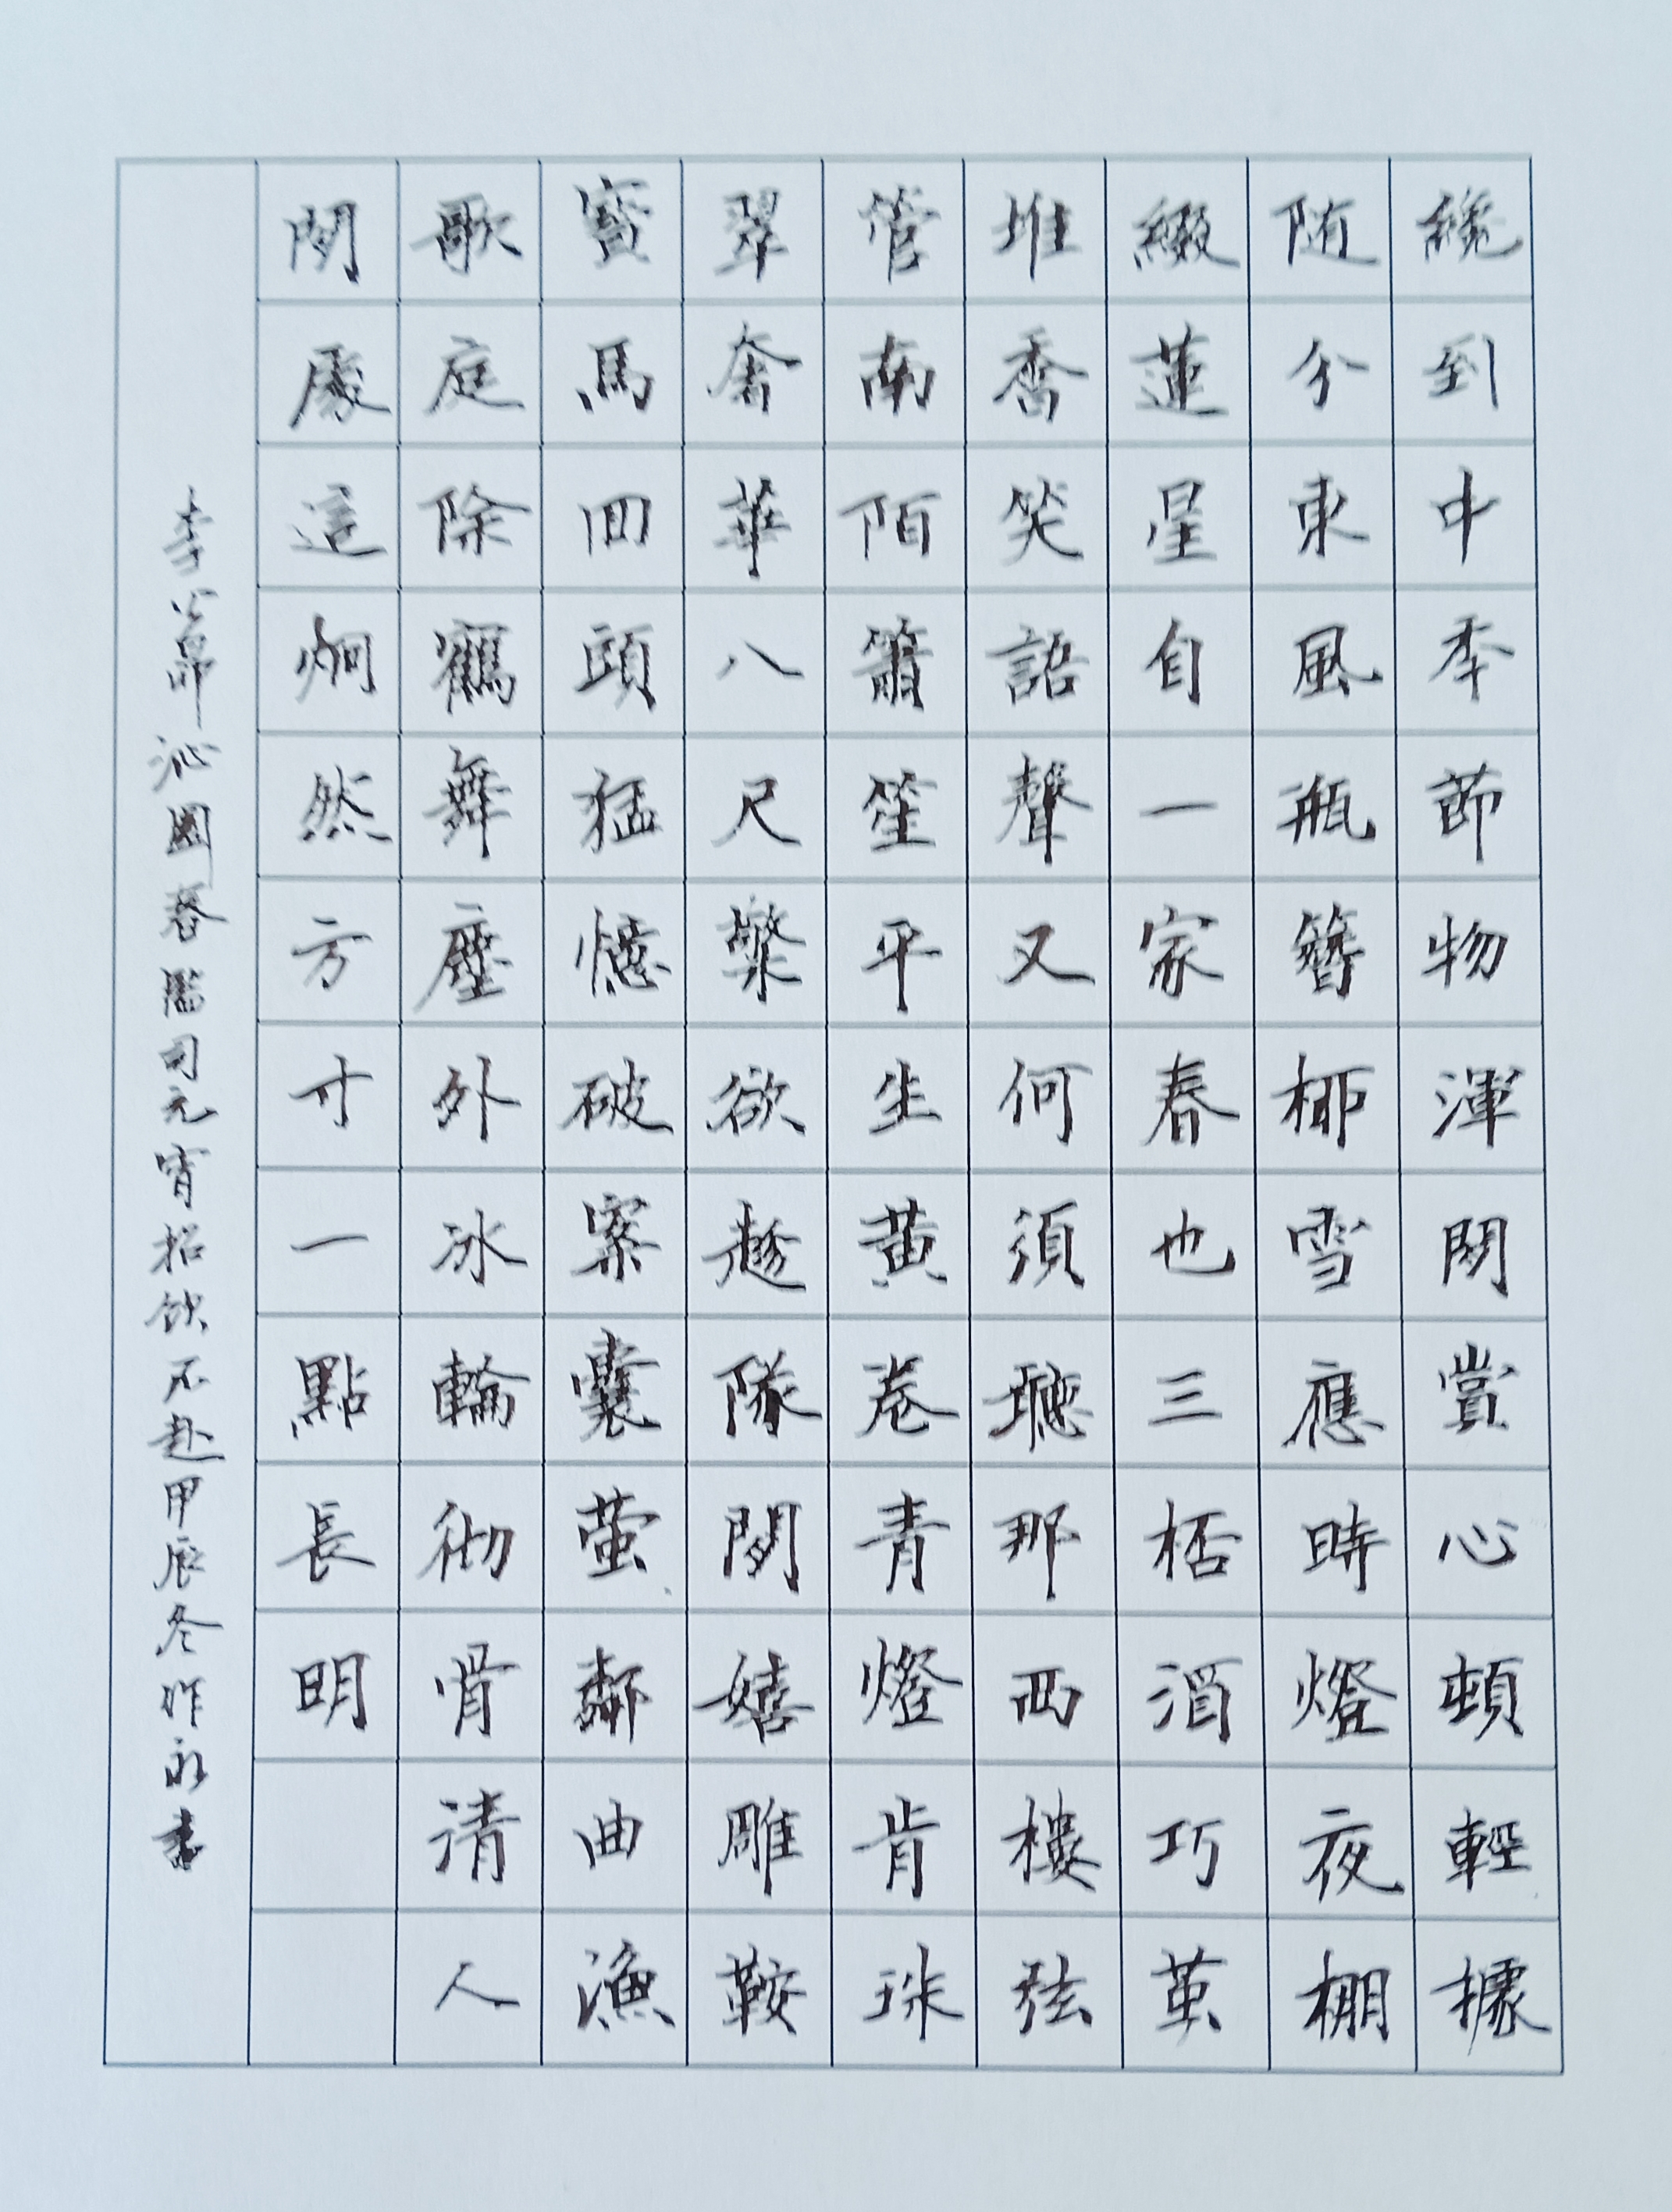 纔到中秊節物渾閒賞心頓輕據
随分東風瓶簪柳雪應時燈夜棚
綴蓮星自一家春也三桮酒巧茧
堆香笑語聲又何須聽那西樓弦
管南陌簫笙平生黄卷青燈肯珠
翠奢華八尺檠欲趂隊閒嬉雕鞍
寶馬回頭猛憶破案囊螢鄰曲漁
歌庭除鶴舞塵外冰輪徹骨清人
閒處這炯然方寸一點長明
李公昴沁園春司元宵招飲不赴甲辰冬永書